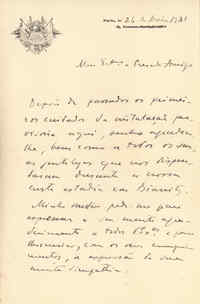 24 de 1931
Meu Exmo e Presado Amigo
Depois de passados os primei-
ros cuidados da instalação pro-
visoria aqui, venho agradecer-
lhe, bem como a todos os seus,
as gentilezas que nos dispen-
saram durante a nossa
curta estadia em Biarritz.
Minha mulher pede-me para
expressar o seu muito agra-
decimento a todos e para
com os seus cumpri-
mentos, a expressão da sua
muita simpathia.